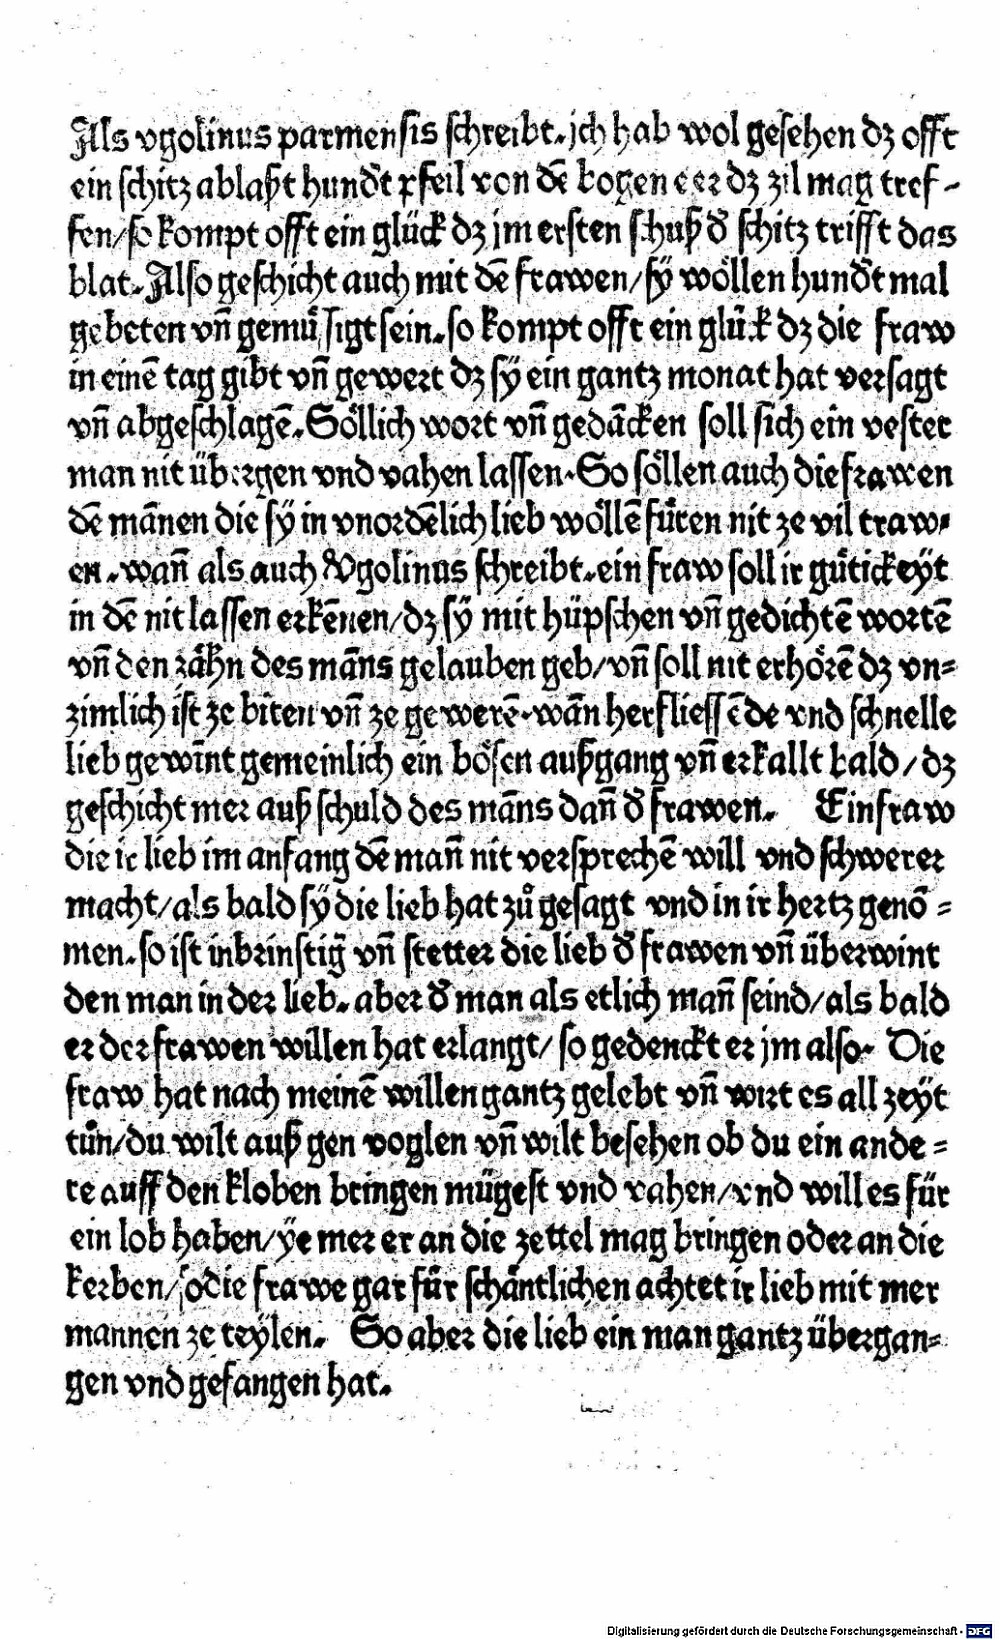 Als vgolinus parmensis schreibt. jch hab wol gesehen dz offt
ein schitz ablaßt hundt pfeil von dē bogen eer dz zil mag tref-
fen/so kompt offt ein glück dz jm ersten schuß d̕ schitz trifft das
blat. Also geschicht auch mit dē frawen/sÿ wöllen hund̕t mal
gebeten vn̄ gemüssigt sein. so kompt offt ein glück dz die fraw
in einē tag gibt vn̄ gewert dz sÿ ein gantz monat hat versagt
vn̄ abgeschlagē. Söllich wort vn̄ gedācken soll sich ein vester
man nit übergen vnd vahen lassen. So söllen auch die frawen
dē mānen die sÿ in vnordēlich lieb wöllē füren nit ze vil traw-
en. wan̄ als auch Vgolinus schreibt. ein fraw soll ir gütickeÿt
in dē nit lassen erkēnen/dz sÿ mit hüpschen vn̄ gedichtē wortē
vn̄ den zähn des māns gelauben geb/vn̄ soll nit erhörē dz vn-
zimlich ist ze biten vn̄ ze gewerē. wān herfliessēde vnd schnelle
lieb gewīnt gemeinlich ein bösen außgang vn̄ erkallt bald/dz
geschicht mer auß schuld des māns dan̄ d̕ frawen. Ein fraw
die ir lieb im anfang dē man̄ nit versprechē will vnd schwerer
macht/als bald sÿ die lieb hat zů gesagt vnd in ir hertz genō-
men. so ist inbrinstiḡ vn̄ stetter die lieb d̕ frawen vn̄ überwint
den man in der lieb. aber d̕ man als etlich man̄ seind/als bald
er der frawen willen hat erlangt/ so gedenckt er jm also. Die
fraw hat nach meinē willen gantz gelebt vn̄ wirt es all zeÿt
tůn/du wilt auß gen voglen vn̄ wilt besehen ob du ein ande-
re auff den kloben bringen mügest vnd vahen/vnd will es für
ein lob haben/ÿe mer er an die zettel mag bringen oder an die
kerben/so die frawe gar für schäntlichen achtet ir lieb mit mer
mannen ze teÿlen. So aber die lieb ein man gantz übergan-
gen vnd gefangen hat.
Digitalisierung gefördert durch die Deutsche Forschungsgemeinschaft - DFG